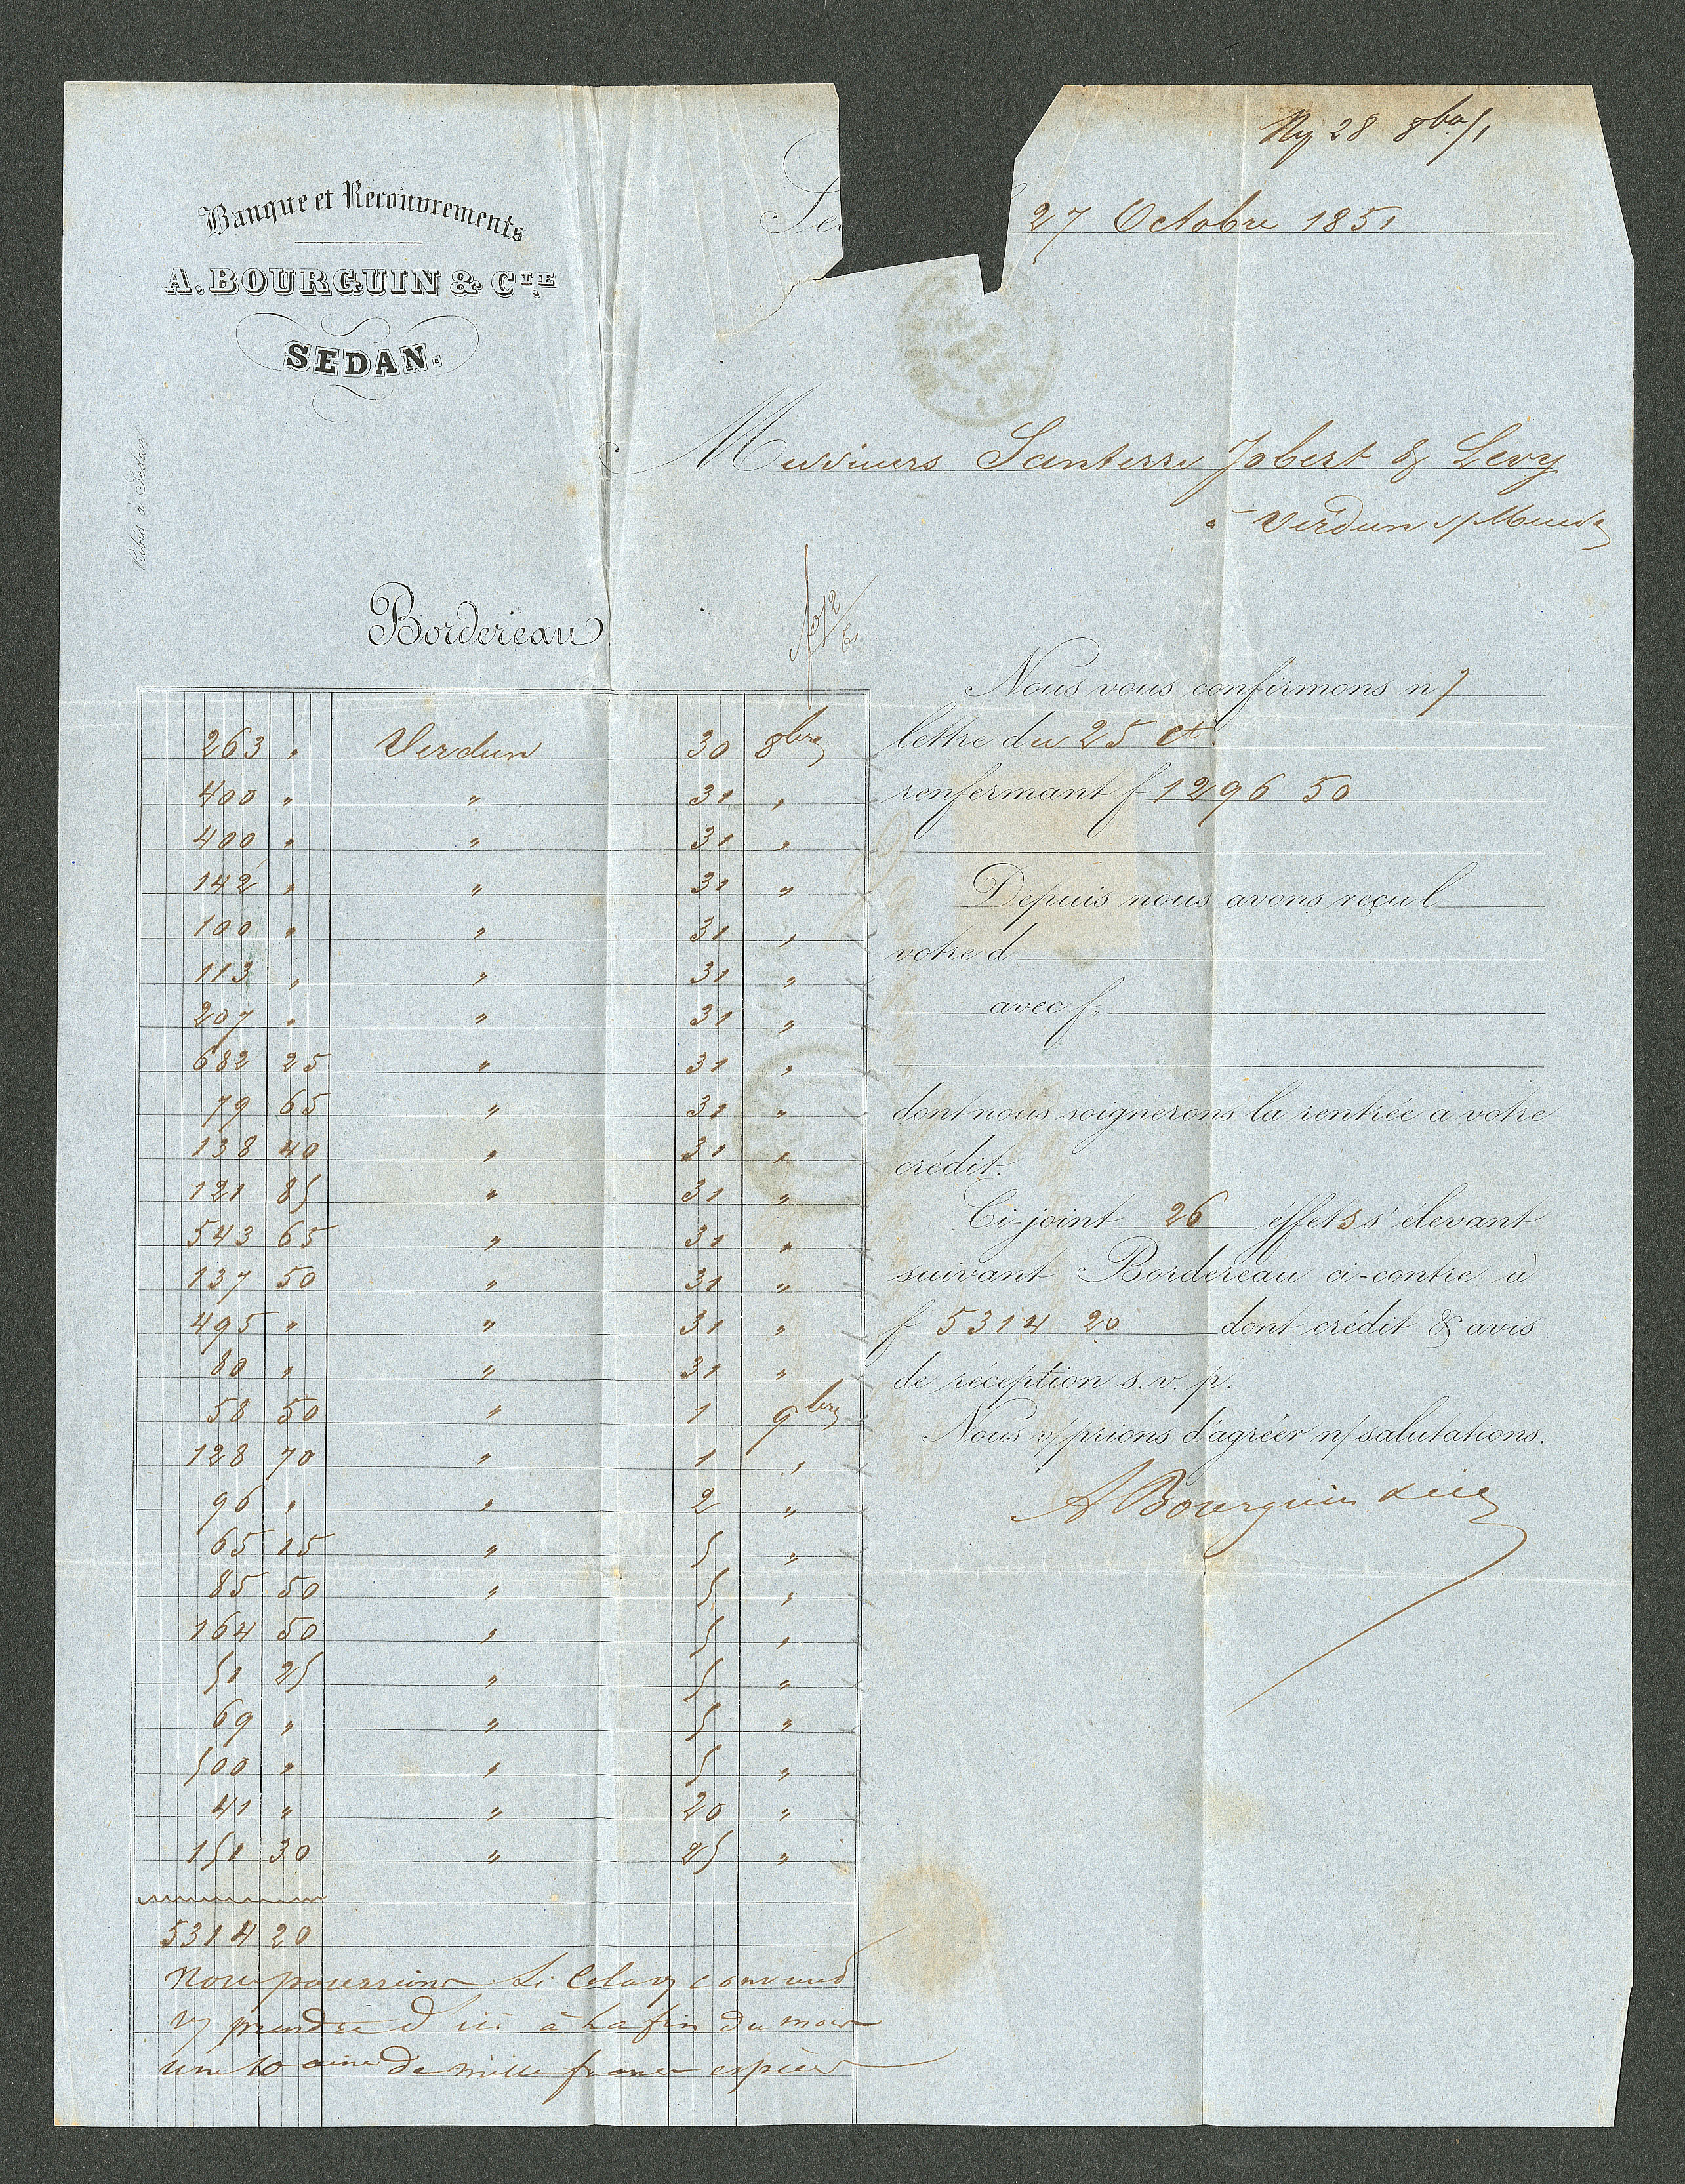 Ry 28 8bre/1
Banque et Recouvrements
A. BOURGUIN & CIE
SEDAN.
27 Octobre 1851
Messieurs Santerre Jobert & Levy
à Verdun s/Meuse
Ribis à Sedan
Bordereau
263 " Verdun 30 8bre
400 " " 31 "
400 " " 31 "
142 " " 31 "
100 " " 31 "
113 " " 31 "
207 " " 31 "
682 25 " 31 "
79 65 " 31 "
138 40 " 31 "
121 85 " 31 "
543 65 " 31 "
137 50 " 31 "
495 " " 31 "
80 " " 31 "
58 50 " 1 9bre
128 70 " 1 "
96 " " 2 "
65 15 " 5 "
85 50 " 5 "
164 50 " 5 "
51 25 " 5 "
69 " " 5 "
500 " " 5 "
41 " " 20 "
151 30 " 25 "
5314 20
Nous pourrions si cela v/ convient
v/ prendre d'ici à la fin du mois
une 10aine de mille francs espèces
Nous vous confirmons n/
lettre du 25 ct.
renfermant f 1296 50
Depuis nous avons reçu l
votre d
avec f.
dont nous soignerons la rentrée a votre
crédit.
Ci-joint 26 éffets s'élevant
suivant Bordereau ci-contre à
f 5314 20 dont crédit & avis
de réception s. v. p.
Nous v/ prions d'agréer n/ salutations.
A Bourguin & Cie